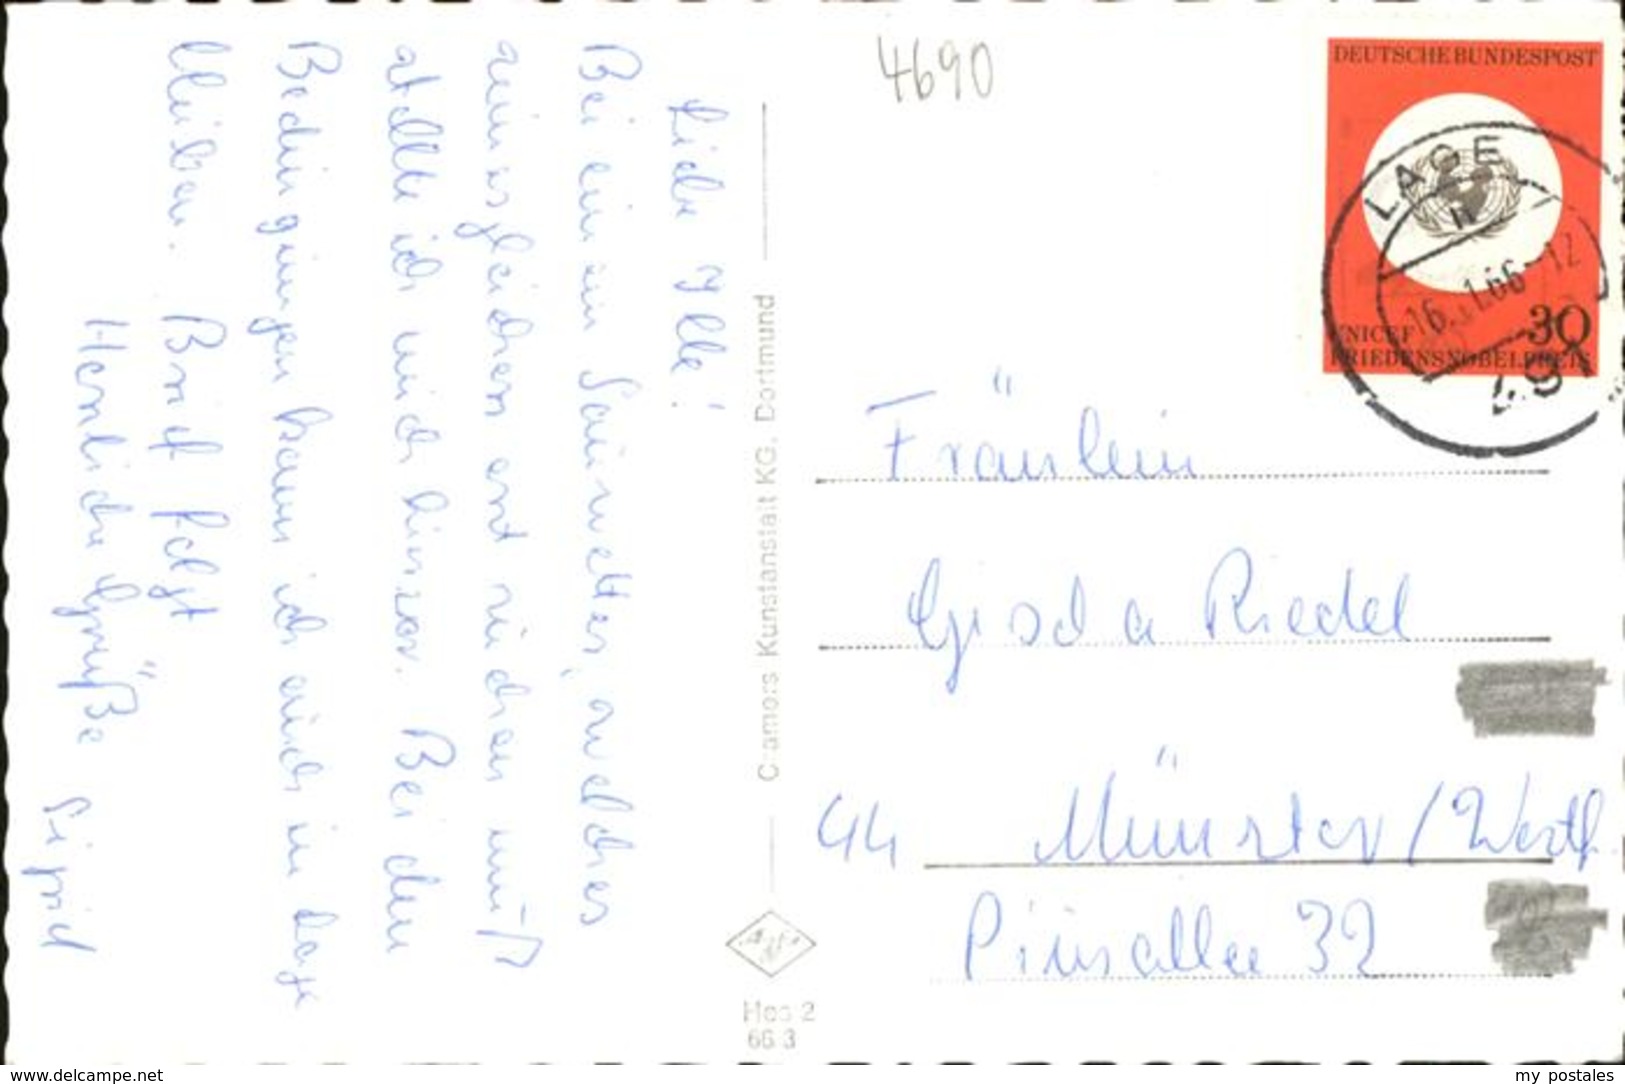 4690
DEUTSCHE BUNDESPOST
LAGE
16.1.66-12
30
UNICEF
FRIEDENSNOBELPREIS
49
Liebe Ille!
Bei einem Sauwetter, welches
seinesgleichen erst suchen muß,
stelle ich mich hier vor. Bei den
Bedingungen kann ich auch in Lage
bleiben. Brief folgt
Herzliche Grüße Sigrid
Cramers Kunstanstalt KG, Dortmund
Hes 2
66 3
Fräulein
Gisela Riedel
44 Münster/Westf.
Piusallee 32
www.delcampe.net
my_postales